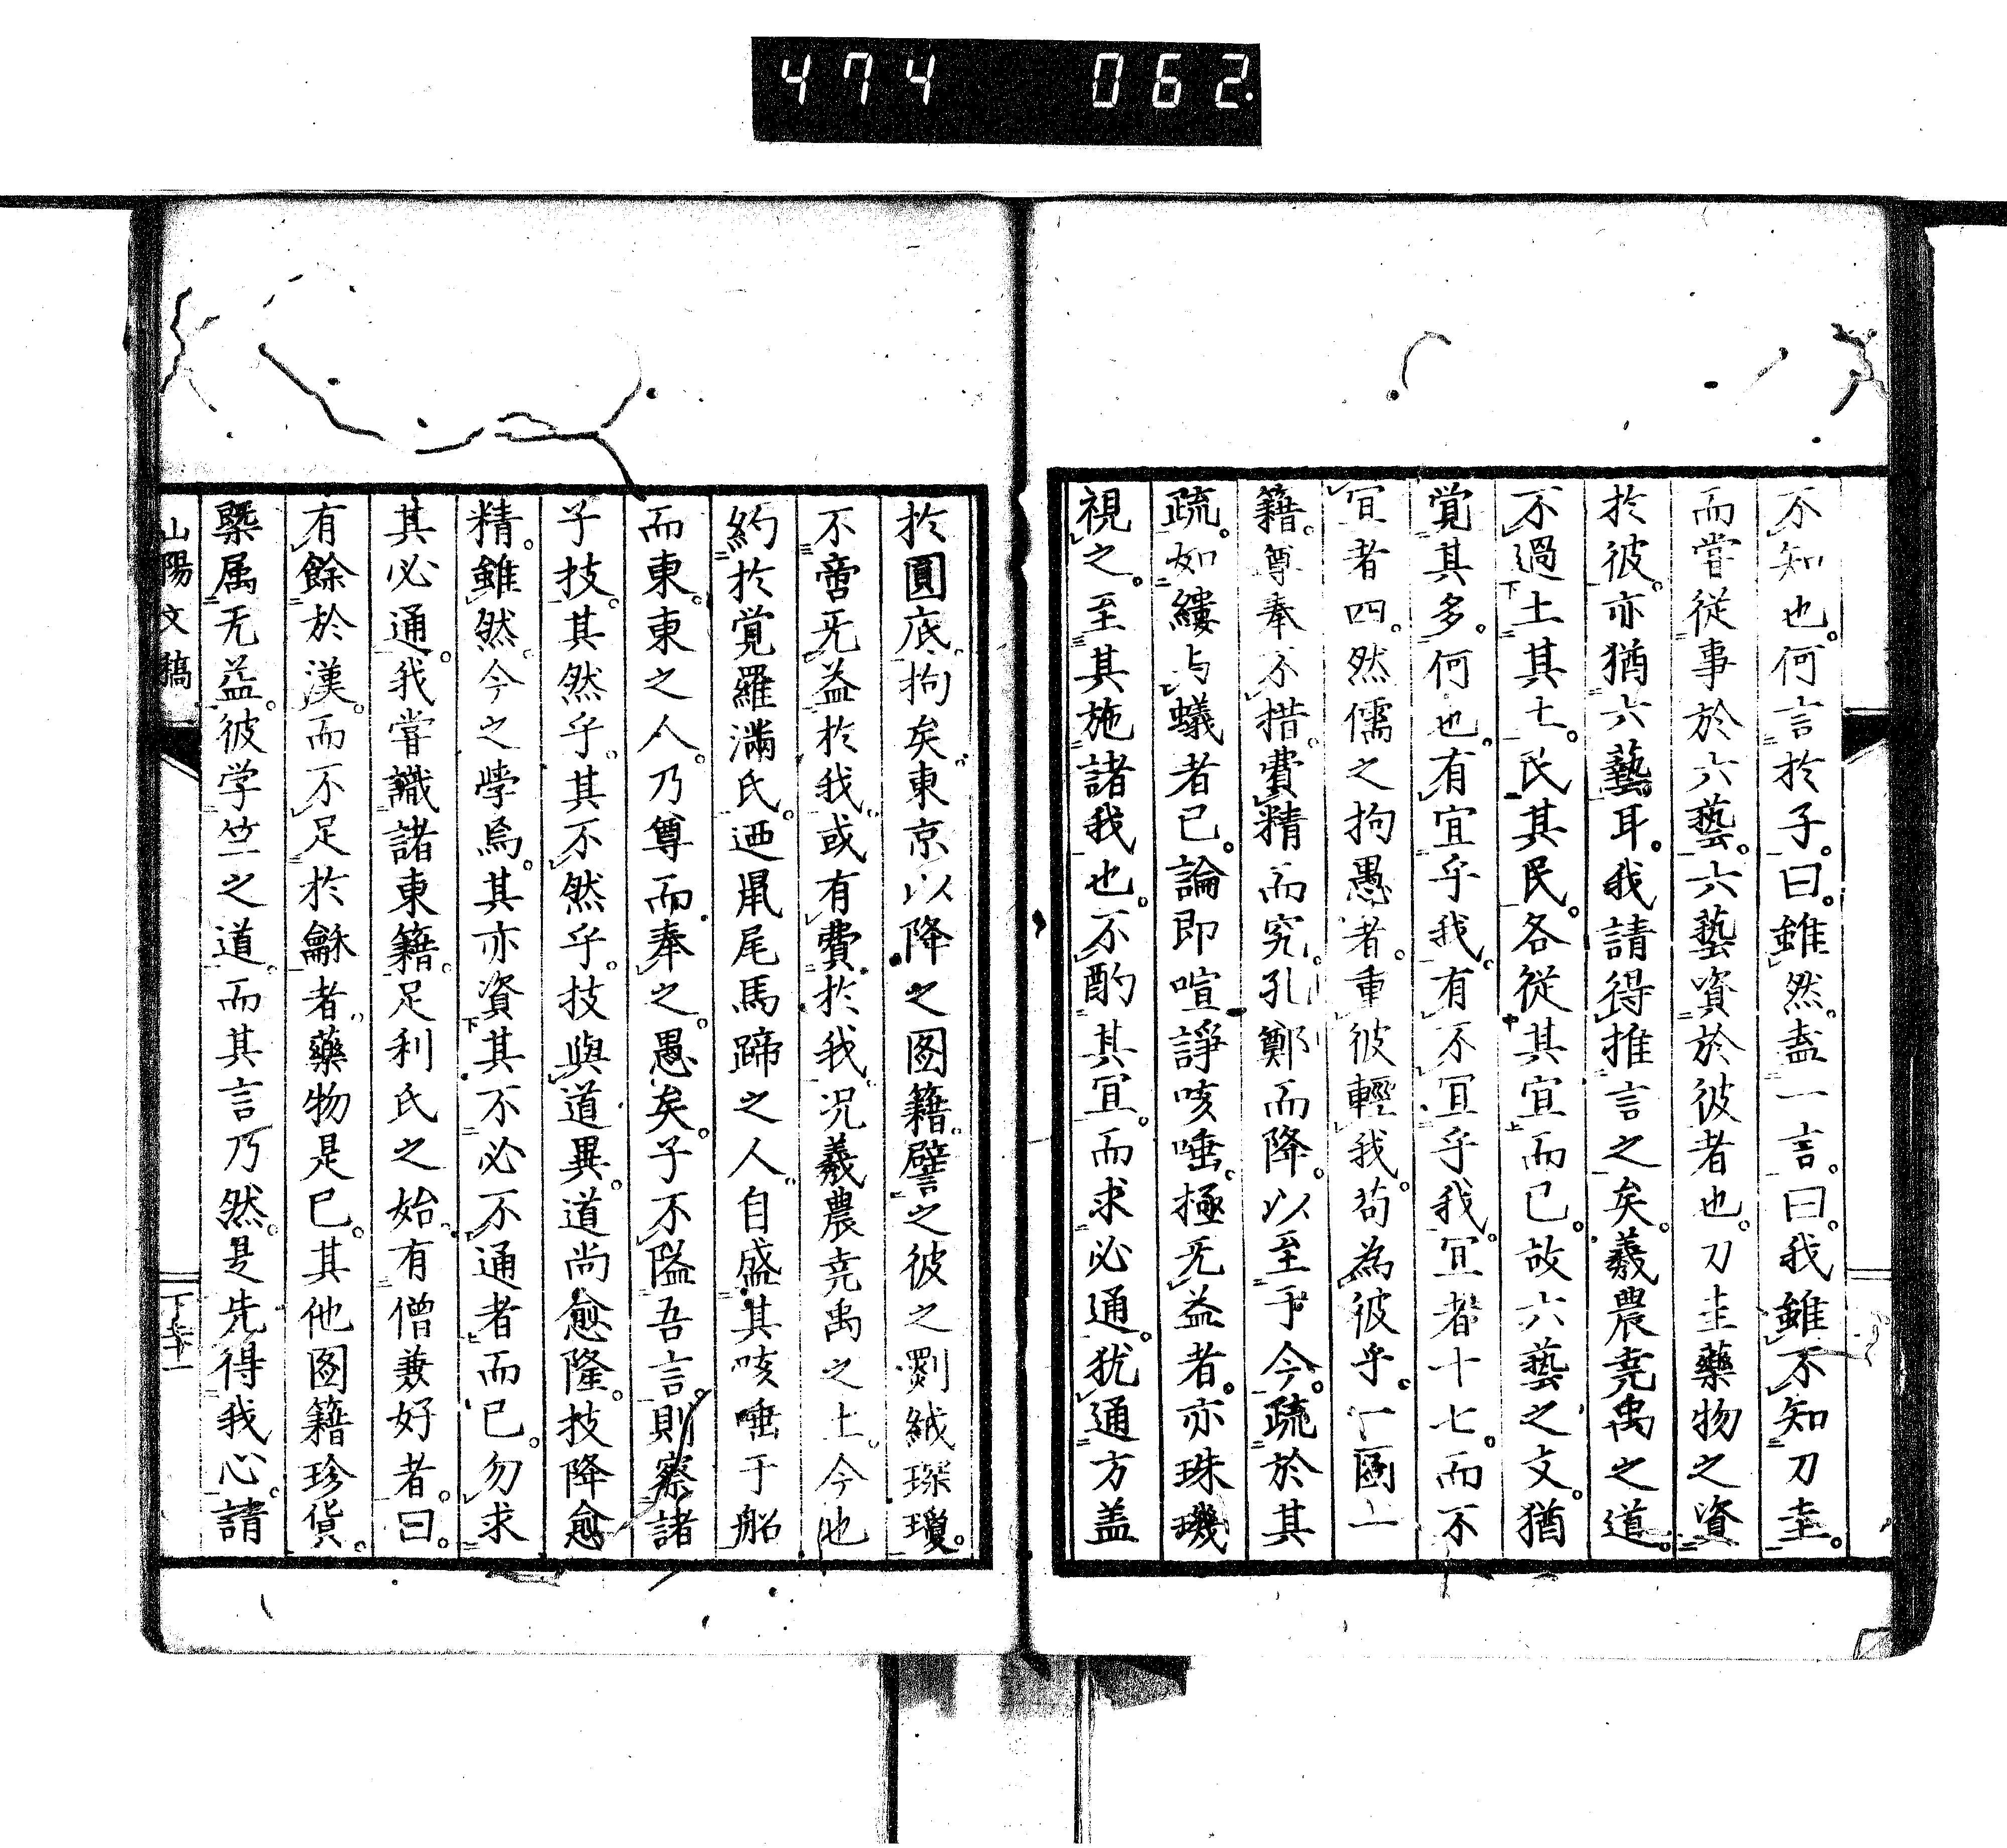 474 062
不知也。何言於子。曰。雖然。盍一言。曰。我雖不知刀圭。
而嘗從事於六藝。六藝資於彼者也。刀圭藥物之資
於彼。亦猶六藝耳。我請得推言之矣。羲農堯禹之道。
不過土其土。民其民。各從其宜而已。故六藝之文。猶
覚其多。何也。有宜乎我。有不宜乎我。宜者十七。而不
宜者四。然儒之拘愚者。重彼輕我。苟為彼乎。
籍。尊奉不措。費精而究。孔鄭而降。以至于今。疏於其
疏。如縷与蟻者已。論即喧諍咳唾。極无益者。亦珠璣
視之。至其施諸我也。不酌其宜。而求必通。犹通方盖
於圓底。拘矣。東京以降之図籍。譬之彼之罽絨琛瓊。
不啻无益於我。或有費於我。况羲農堯禹之上。今也
約於覚羅満氏。迺鼠尾馬蹄之人。自盛其咳唾于船
而東。東之人。乃尊而奉之。愚矣。子不隘吾言。則察諸
子技。其然乎。其不然乎。技與道異。道尚愈隆。技降愈
精。雖然。今之学焉。其亦資其不必不通者而已。勿求
其必通。我嘗識諸東籍。足利氏之始。有僧兼好者。曰。
有餘於漢。而不足於龢者。藥物是已。其他図籍珍貨。
槩属无益。彼学竺之道。而其言乃然。是先得我心。請
山陽文稿